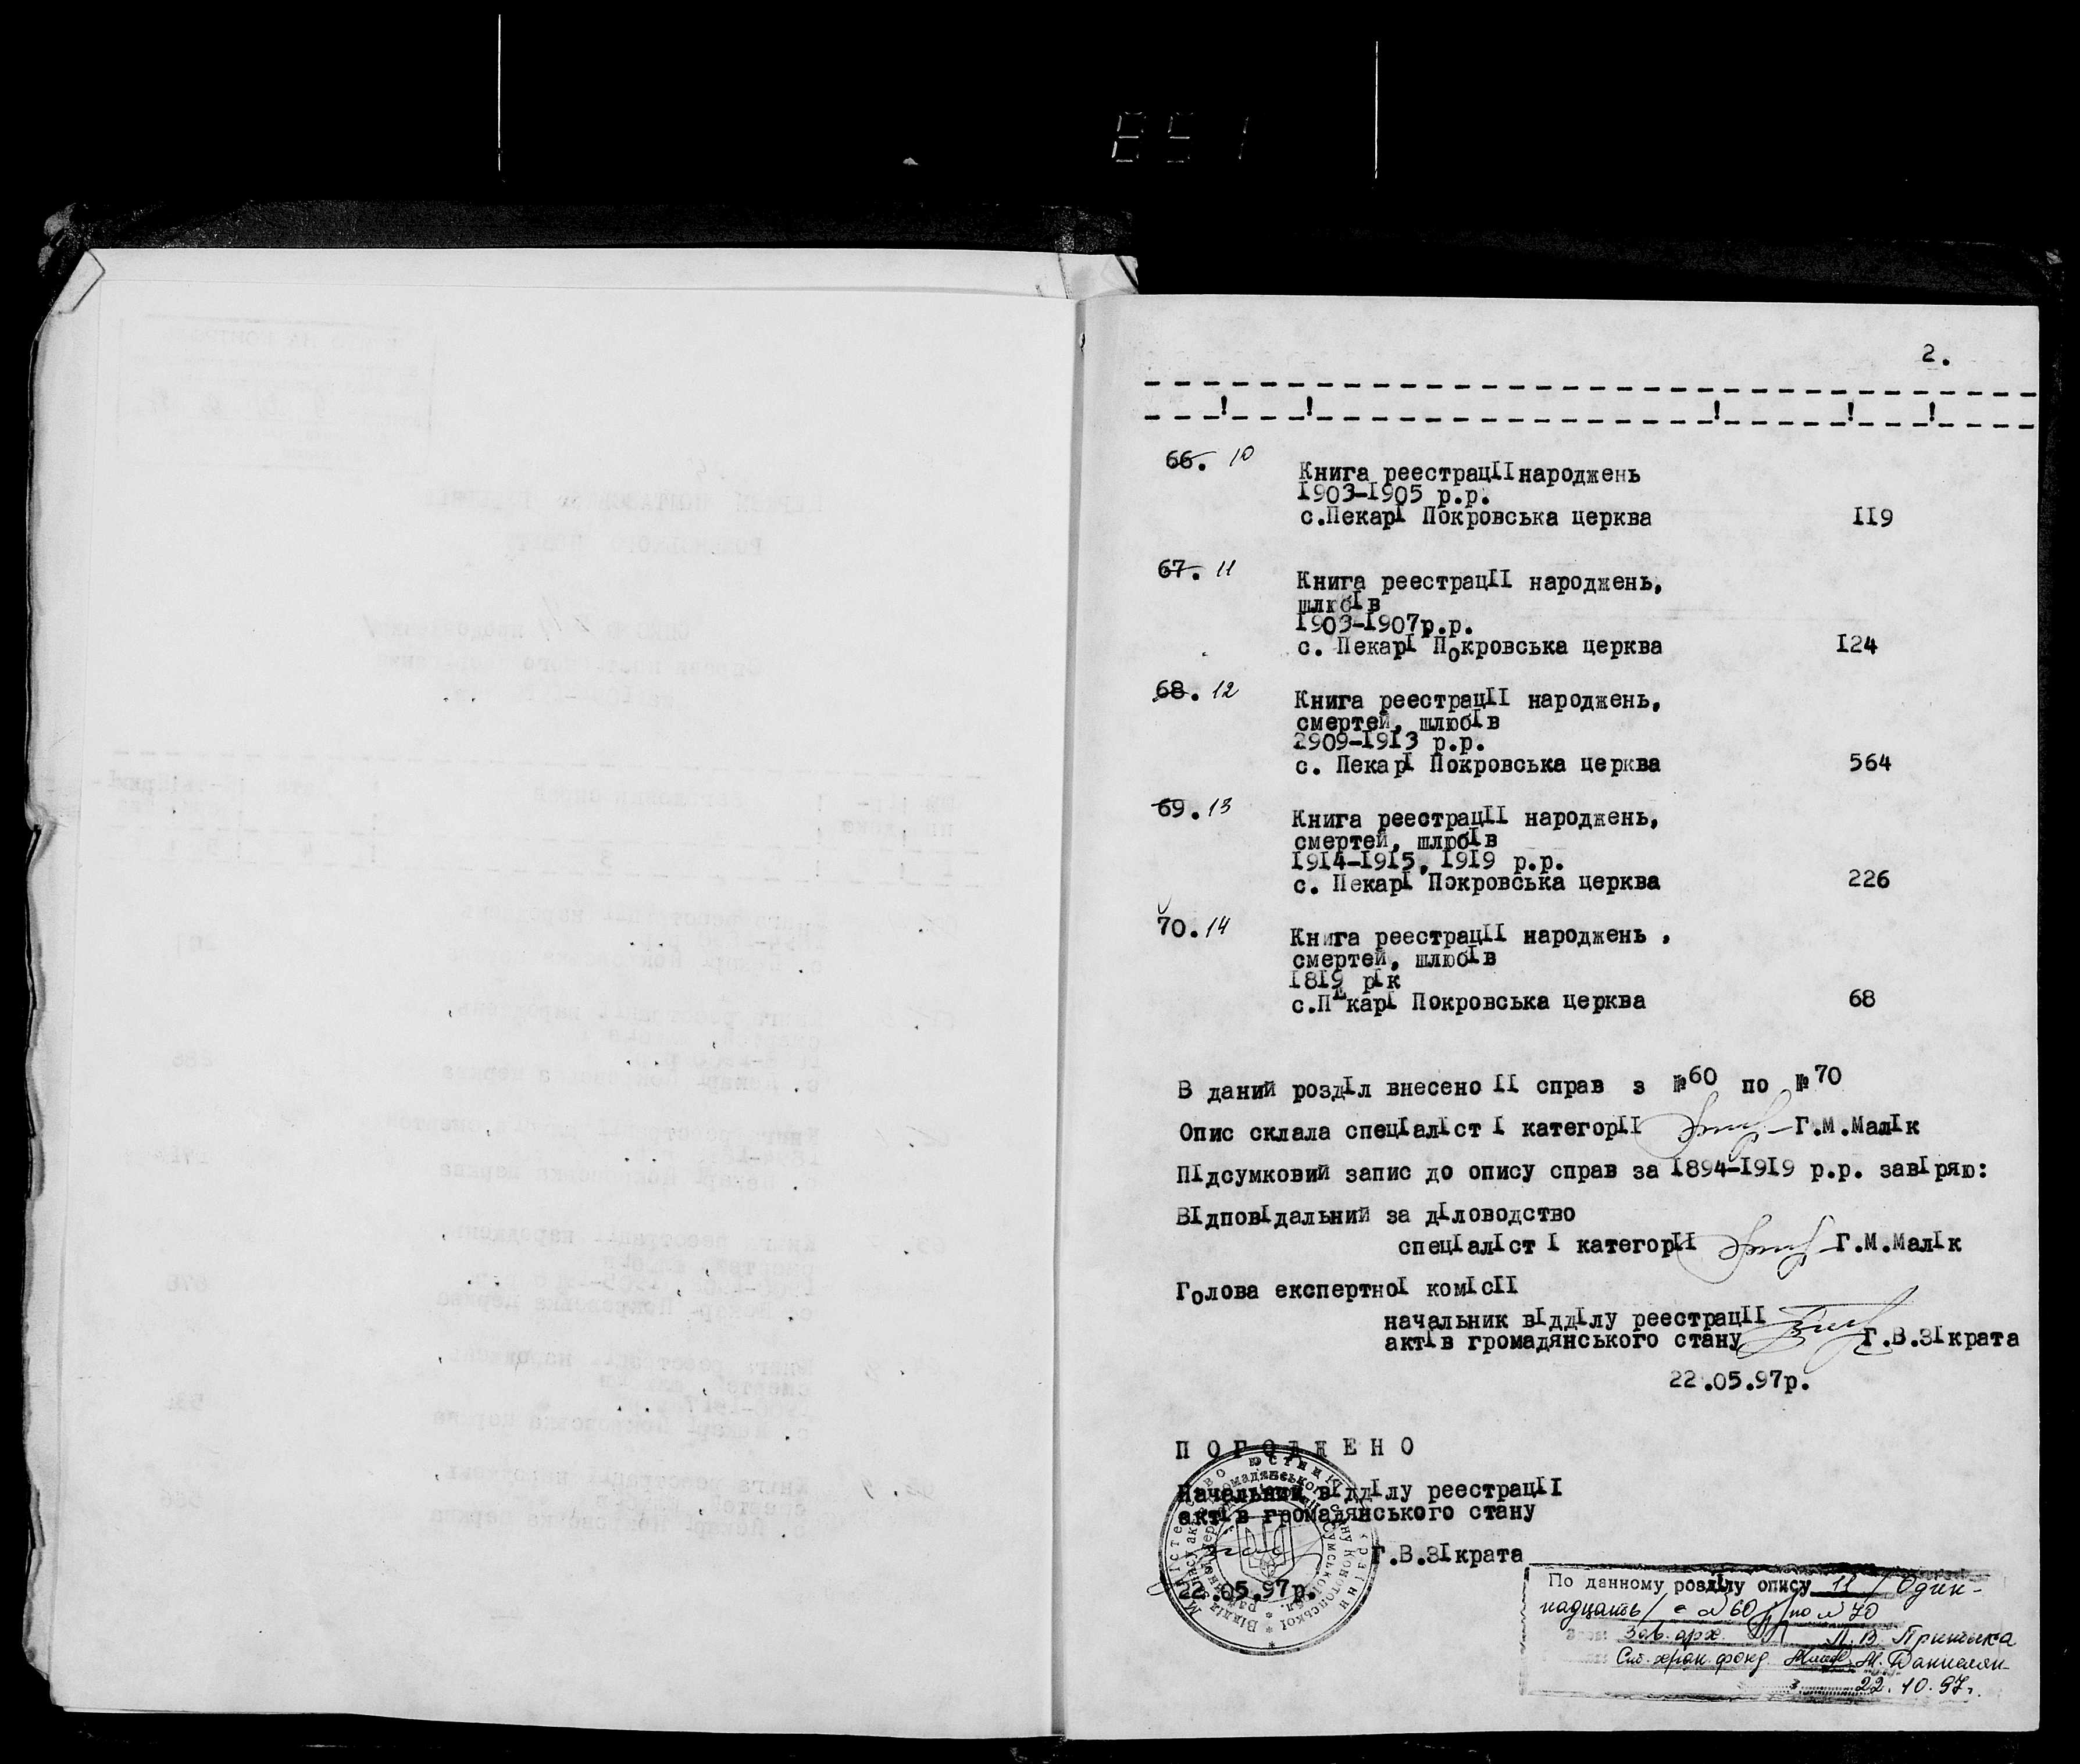 851
2.
66. 10
Книга реестрацІІ народжень
І903-І905 р.р.
с.ПекарІ Покровська церква ІІ9
67. 11
Книга реестрацІІ народжень,
шлюбІв
І903-І907р.р.
с. ПекарІ Покровська церква І24
68. 12
Книга реестрацІІ народжень,
смертей, шлюбІв
2909-І9І3 р.р.
с. ПекарІ Покровська церква 564
69. 13
Книга реестрацІІ народжень,
смертей, шлюбІв
І9І4-І9І5, І9І9 р.р.
с. ПекарІ Покровська церква 226
70. 14
Книга реестрацІІ народжень ,
смертей, шлюбІв
І8І9 рІк
с.ПЕкарІ Покровська церква 68
В даний роздІл внесено ІІ справ з №60 по №70
Опис склала спецІалІст І категорІІ Г.М.МалІк
ПІдсумковий запис до опису справ за І894-І9І9 р.р. завІряю:
ВІдповІдальний за дІловодство
спецІалІст І категорІІ Г.М.МалІк
Голова експертноІ комІсІІ
начальник вІддІлу реестрацІІ
актІв громадянського стану Г.В.ЗІкрата
22.05.97р.
П О Г О Д Ж Е Н О
Начальник вІддІлу реестрацІІ
актІв громадянського стану
Г.В.ЗІкрата
22.05.97р.
По данному роздІлу опису 11 / Один-
надцать / с №60 по №70
Зав. арх. Л.В
М.
22.10.97г.